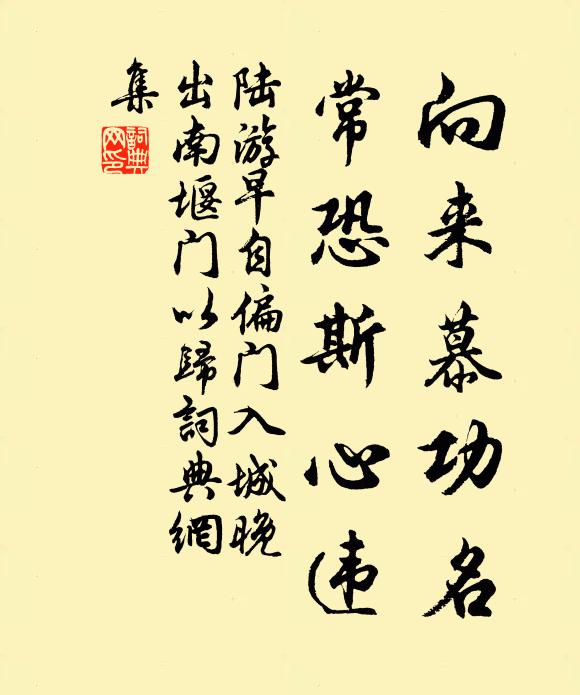 向来慕功名
常恐斯心违
陆游早自偏门入城晚
出南堰门以歸詞典網
集
詞典
网印